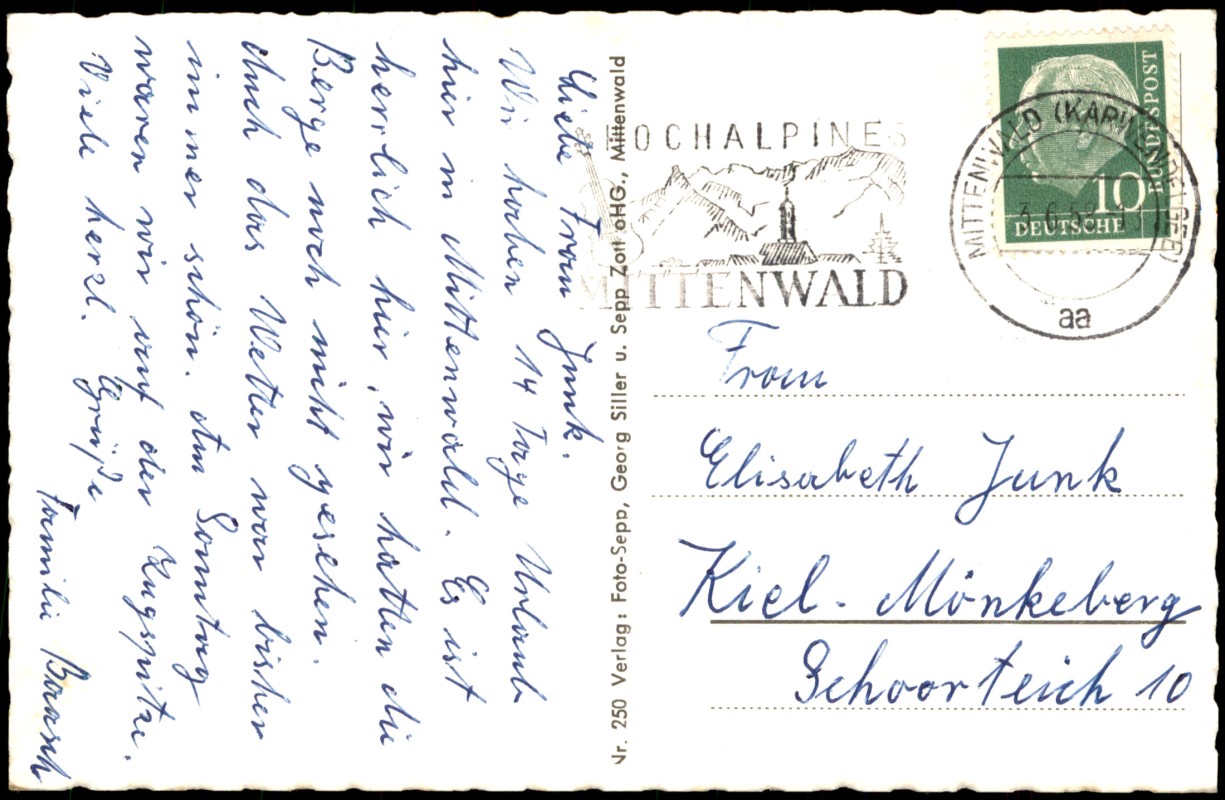 Liebe Frau Junk.
Wir haben 14 Tage Urlaub
hier in Mittenwald. Es ist
herrlich hier, wir hatten die
Berge noch nicht gesehen.
Auch das Wetter war bisher
immer schön. Am Sonntag
waren wir auf der Zugspitze.
Viele herzl. Grüße
Familie Baasch
Nr. 250 Verlag: Foto-Sepp, Georg Siller u. Sepp Zott oHG., Mittenwald
HOCHALPINES
MITTENWALD
MITTENWALD (KARWENDELGEB)
3.6.58
aa
BUNDESPOST
10
DEUTSCHE
Frau
Elisabeth Junk
Kiel-Mönkeberg
Schoorteich 10